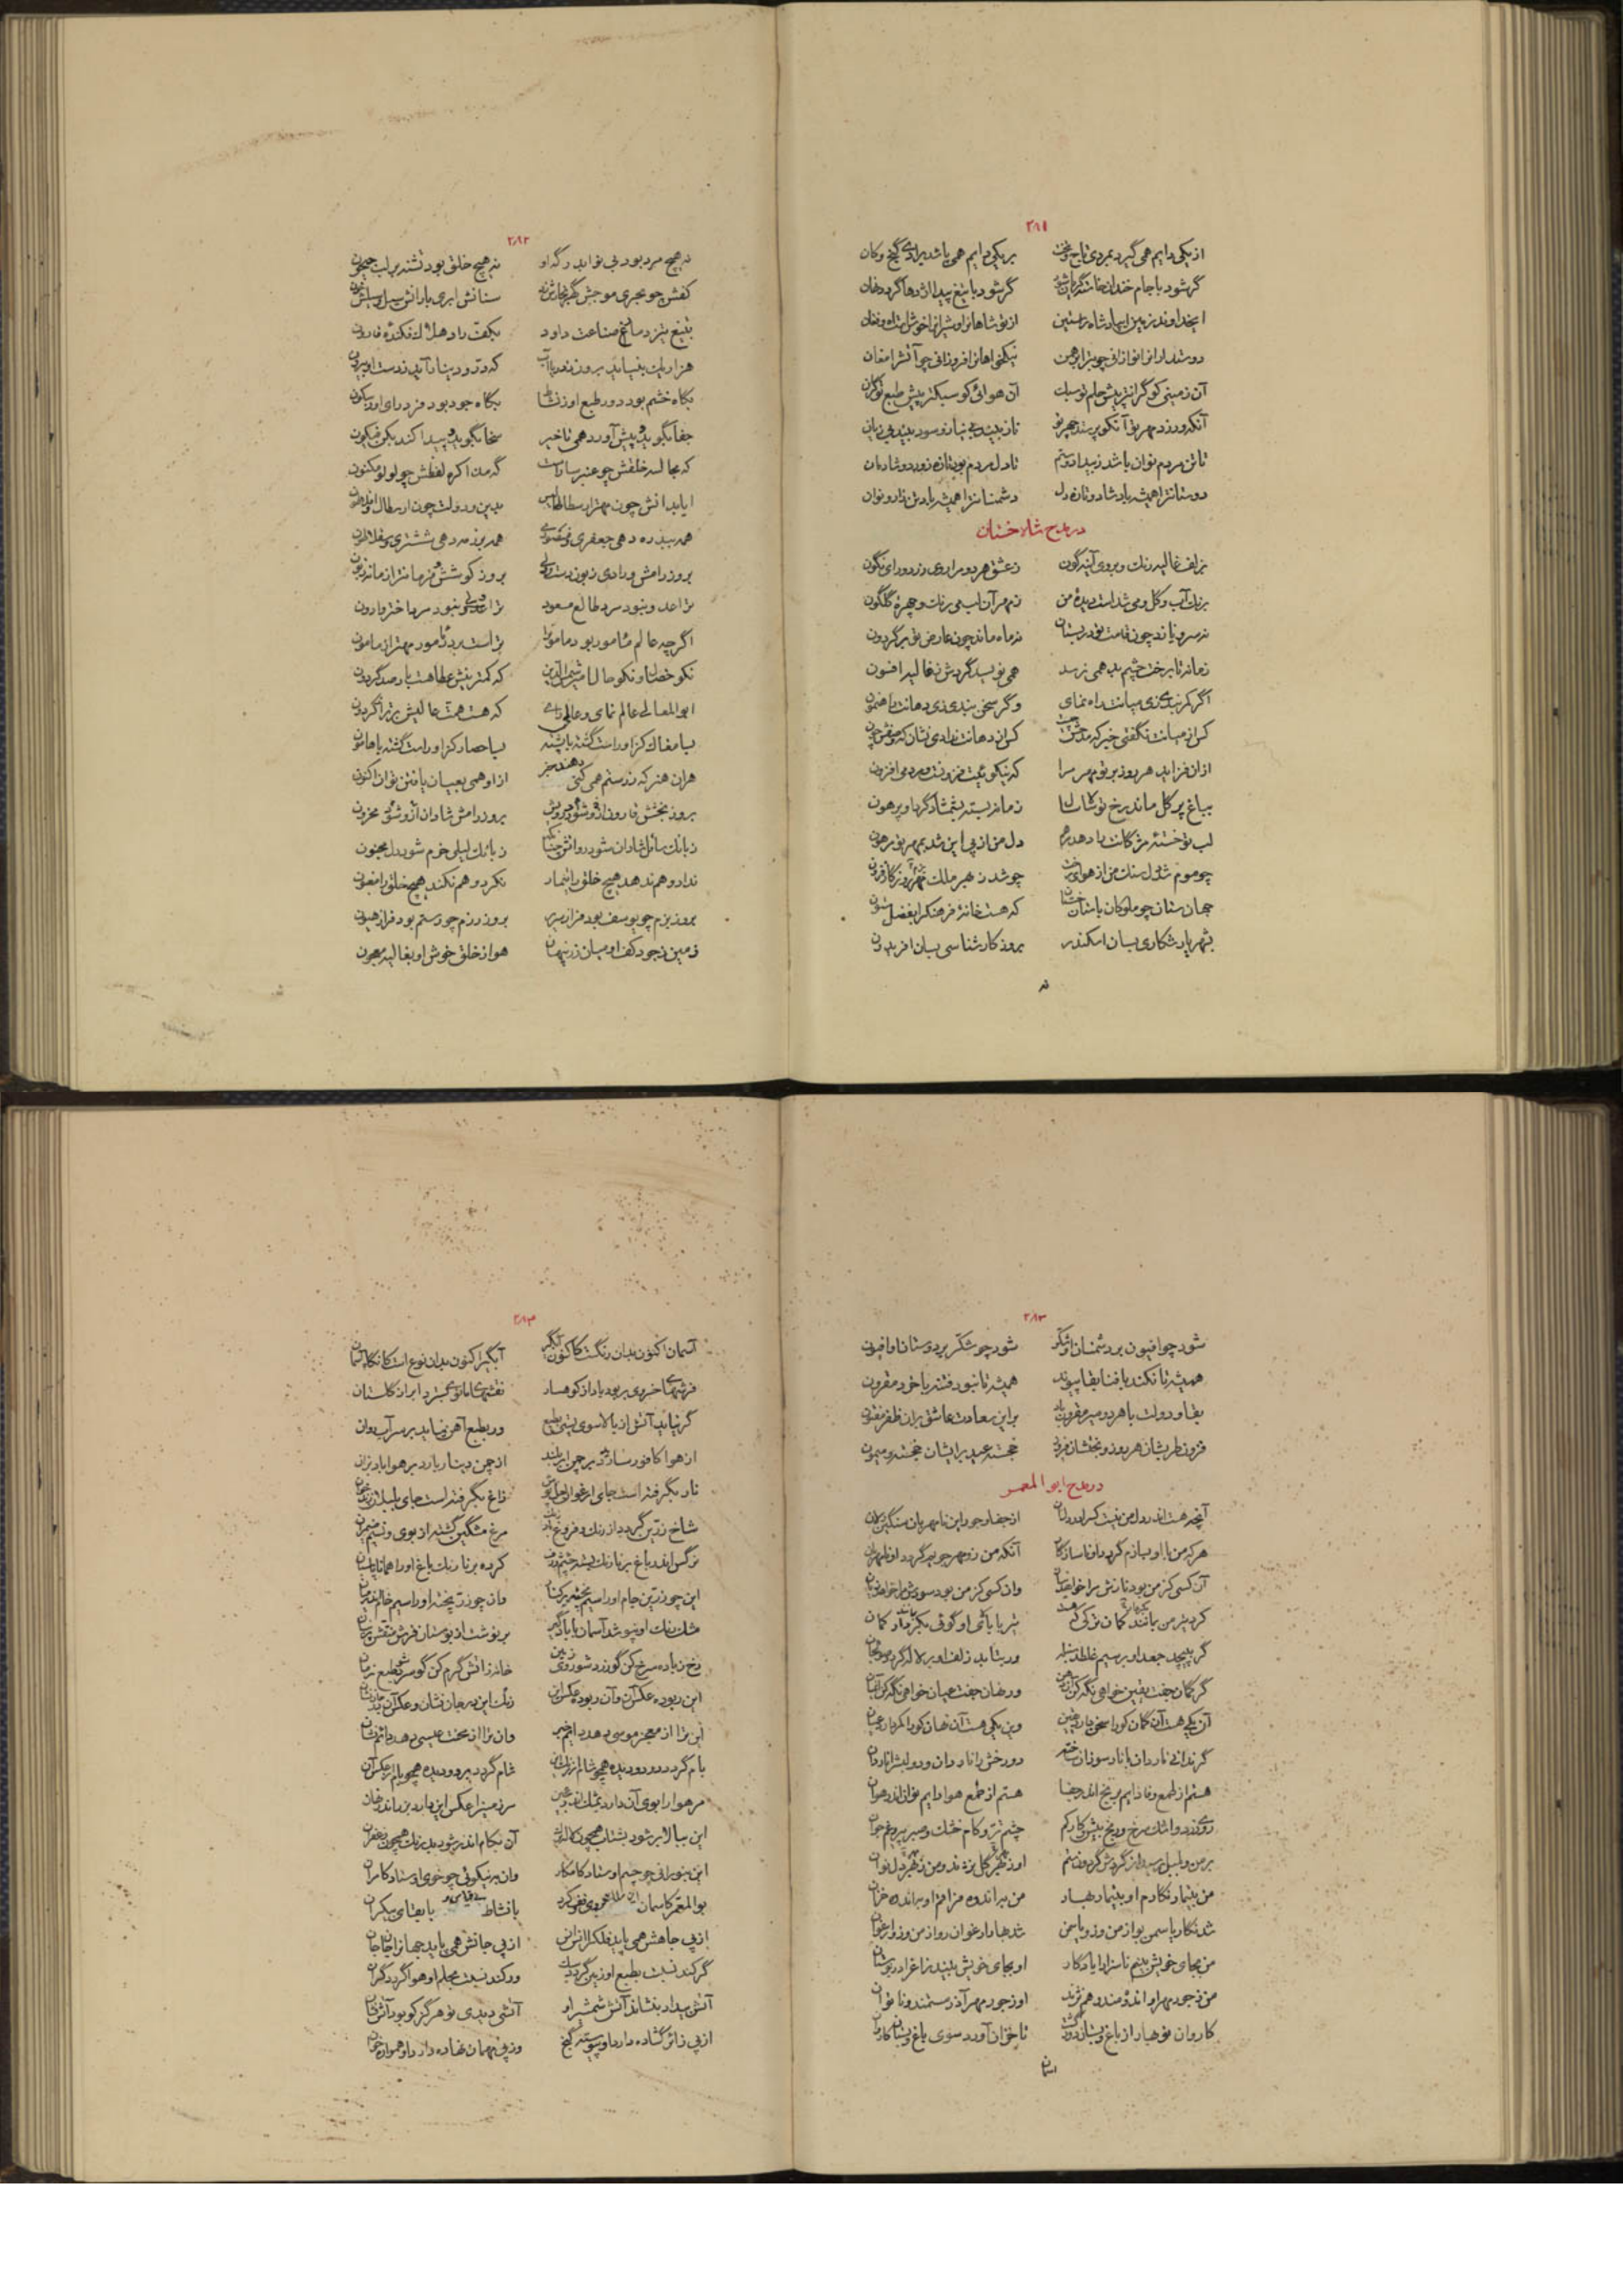 ۲۸۱
از یکی دایم همی گیرد بمردی تاج و تخت بر یکی دایم همی باشد برادی گنج و کان
گر شود با جام خندان خانه گریان شود گر شود با تیغ پیدا اژدها گردد نهان
ای خداوند زمین ای پادشاه راستین از تو شاهانرا و شیرانرا خروش است و فغان
دوستدارانرا نوازانی چو بت را برهمن نیکخواهانرا فروزانی چو آتش را مغان
آن زمینی کو گرانتر پیش حلم تو سبک آن هوائی کو سبکتر پیش طبع تو گران
آنکه ورزد مهر تو آنکو پرستد چهر تو ناز بیند بی نیاز و سود بیند بی زیان
تا تن مردم نوان باشد ز بیداد و ستم تا دل مردم بود تازه ز ورد و شادمان
دوستانترا همیشه باد شاد و تازه دل دشمنانترا همیشه باد تن زار و نوان
در مدح شاه خشتان
بزلف غالیه رنگ و بروی آینه گون ز عشق هر دو مرا روی زرد و رای نگون
برنگ آب و گل و می شد است دیده من ز مهر آن لب می رنگ و چهره گلگون
نه سرو یازد چون قامت تو در بستان نه ماه ماند چون عارض تو بر گردون
زمانه تا برخت چشم بد همی نرسد همی نویسد گردش ز غالیه افسون
اگر کمر نبدی زی میانت راه نمای وگر سخن نبدی زی دهانت راهنمون
کس از میانت نگفتی خبر که چندست کس از دهانت ندادی نشان که صفتش چون
ازان فزاید هر روز بر تو مهر مرا که نیکوئیت فزونست و مردمی افزون
بباغ پر گل ماند رخ تو کش زمانه بسته بشمشاد گرد او پرهون
لب تو خسته مژگانت باد هد مرهم دل من از پی این شد بمهر تو مرهون
چو موم شد دل سنگ من از هوای چو شد ز مهر ملک
جهان ستان چو ملوکان باستان که هست خانه فرهنگ را بفضل ستون
بشهریار شکاری بسان اسکندر بروز کار شناسی بسان افریدون
نه
۲۸۲
نه هیچ مرد بود بی نوا بدرگه او نه هیچ خلق بود تشنه بر لب جیحون
کفش چو بحری موجش سنانش ابری بارانش
بتیغ تیز دماغ صناعت داود بکف راد هلاک فکنده قارون
هزار یک بنیاید برون ز دریا آب که در و دینار آید ز دست او بیرون
بگاه خشم بود دور طبع او ز نشاط بگاه جود بود فرد رای او ز سکون
جفا نگوید و پیش آورد همی تاخیر سخا نگوید و پیدا کند یکن فیکون
که مجالسه خلقش چو عنبر ساراست گه مذاکره لفظش چو لولو مکنون
ایا بدانش چون مهتر ارسطاطالیس بدین و دولت چون
همه ببدره دهی جعفری همه برزمه دهی ششتری
بروز رامش و رادی بروز کوشش
ترا عدو نبود سرد طالع مسعود ترا ولی نبود سرد اختر وارون
اگر چه عالم مامور بود مامونرا تراست بنده مامور مهتر از مامون
نکو خصال و نکو حال شمس الدین که کمترینش عطا هست بار صد گردون
ابوالمعالی عالم نمای و عالی رای که هست همت عالیش برتر از گردون
بسا مغاک کزو راست گشته با پشته بسا حصار کزو راست گشته با هامون
هران هنر که ز رستم همی کنی ازو همی بعیان یافتن توان اکنون
بروز بخشش قارون ازو شود درویش بروز رامش شادان ازو شود محزون
ز بانگ سائل شادان شود روانش ز بانگ لیلی خرم شود دل مجنون
ندارد و هم ندهد هیچ خلق را تیمار نکرد و هم نکند هیچ خلق را مغبون
بروز بزم چو یوسف بود فراز سریر بروز رزم چو رستم بود فراز هیون
زمین ز جود کف او میان زر پنهان هوا ز خلق خوش او بغالیه معجون
۲۸۳
شود چو افیون بر دشمنان او شکر شود چو شکر بر دوستان او افیون
همیشه تا نکند یافنا بقا پیوند همیشه تا نبود فتنه با خرد مقرون
بقا و دولت با هر دو میر مقرون باد بر این سعادت عاشق بران ظفر مفتون
فزون طربشان هر روز و بختشان فزون خجسته عید بر ایشان خجسته و میمون
در مدح ابو المعمر
آنچه هست اندر دل من نیست کس را در دل از جفا و جور این نامهربان سنگین دلان
هر که من با او بسازم گردد او ناسازگار آنکه من زو مهر جویم گردد او نامهربان
آن کسی کز من بود نازش مرا خواهد وان کسی کز من بود سودش مرا خواهد زیان
کرد تیر من کمان ترکی
گر بپیچد جعد او بر سیم غلطد بنگر ور بتابد زلف او بر لاله گردد
گر گمان جفت یقین خواهی نگه کن ور نهان جفت عیان خواهی نگه کن
آن یکی هست آن گمان کورا سخن دارد یقین وین یکی هست آن نهان کورا کمر دارد عیان
گر ندانی ناردان با نار سوزان ساخته دو رخش را نار دان و دو لبش را ناردان
هستم از طمع وفا دایم برنج اندر جفا هستم از طمع هوا دایم بوان اندر هوان
روی زرد و اشک سرخ و رنج بیش و کار کم چشم تر و کام خشک و صبر پیر و غم جوان
بر من و بلبل رسید از گردش گردون ستم او ز هجر گل نژند و من ز هجر دل نوان
من به تیمار نگارم او به تیمار بهار من به اندوه فراق او به اندوه خزان
شد نگار یاسمین بو از من و زو یاسمن شد بهار ارغوان رو از من و زو ارغوان
من بجای خویش بینم ناسزا را یادگار او بجای خویش بیند زاغ را در بوستان
من ز جور مهر او اندوهمند و هم نژند او ز جور مهر آذر مستمند و ناتوان
کاروان نو بهار از باغ و بستان دور گشت تا خزان آورد سوی باغ و بستان کاروان
اسمان
۲۸۴
آسمان اکنون بدان رنگست کاکنون آبگیر آبگیر اکنون بدان نوع است کانگاه آسمان
فرشهای خسروی بربود باد از کوهسار نقشهای مانوی بسترد ابر از گلستان
گر نیاید آتش از بالا سوی پستی بطبع ور بطبع آهن نیاید بر سر آب روان
از هوا کافور سازد بر چمن ابر بلند از چمن دینار بارد بر هوا باد بزان
نار بگرفته است جای ارغوان لعل پوش زاغ بگرفته است جای بلبلان زند خوان
شاخ زرین گردد از رنگ و فروغ مرغ مشگین گشته از بوی و نسیم ضیمران
نرگس اندر باغ کرده برنا رنگ باغ
این چو زرین جام او را سیم پخته بر کنار وان چو زر پخته او را سیم خام اندر میان
مشک رنگ او بپوشد آسمان با بادگیر بر نوشت از بوستان فرش منقش
رخ ز باده سرخ کن گو زرد شو روی زمین خانه ز آتش گرم کن گو سرد شو طبع زمان
این ربوده عکس آن و آن ربوده عکس این رنگ این مرجان نشان و عکس آن
این ترا از معجز موسی دهد دایم خبر وان ترا از محنت عیسی دهد دائم نشان
بام گردد دود دیده همچو شام از رنگ این شام گردد دیده همچو بام از عکس آن
مر هوا را بوی آن دارد بمشک اندر عجین مر زمین را عکس این دارد بزر اندر نهان
این ببالا بر شود بشتاب همچون آن بکام اندر شود بد رنگ همچون زعفران
این بنورانی چو چهر اوستاد کامکار وان به نیکوئی چو خوی اوستاد کامران
بوالمعمر کاسمان با نشاط بی قیاس و با بقای بیکران
از پی جاهش همی باید فلک را از پی جانش همی باید جهان را جاودان
گر کند نسبت بطبع او زمین گردد سبک ور کند نسبت بحلم او هوا گردد گران
آتش بیداد بنشاند آتش شمشیر او آتشی دیدی تو هرگز کو بود آتش نشان
از پی زائر گشاده دارد او پیوسته گنج وز پی مهمان نهاده دارد او همواره خوان